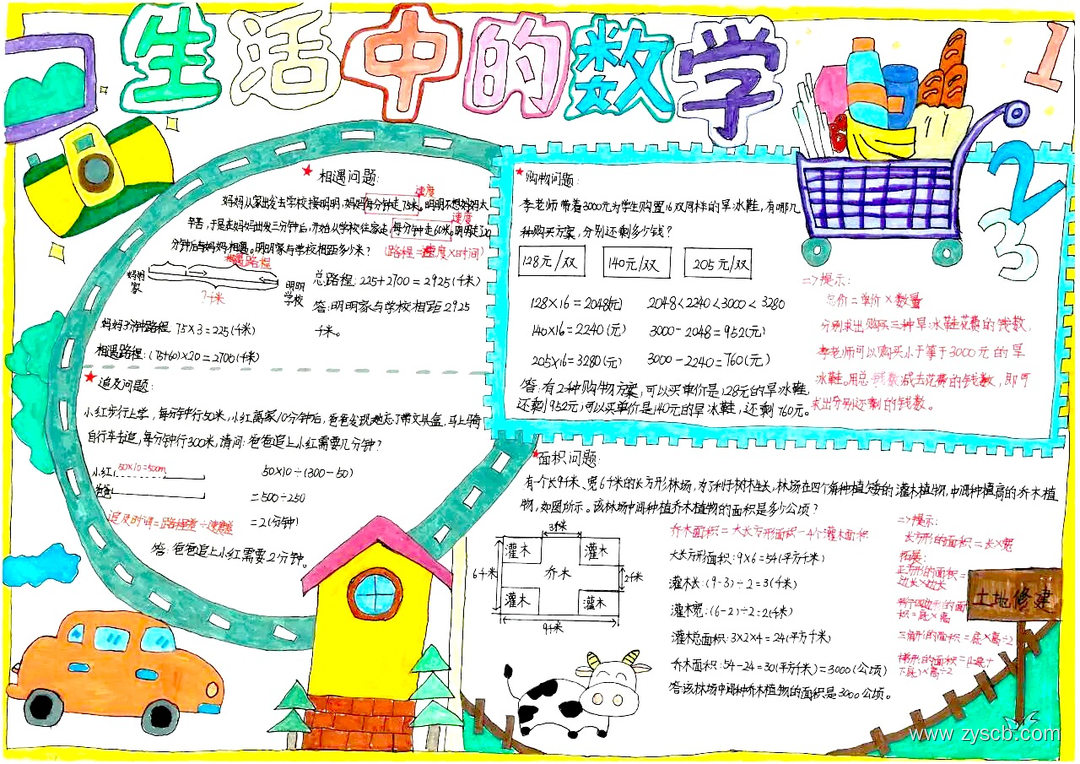 生活中的数学
1
2
3
★相遇问题:
速度
妈妈从家出发去学校接明明,妈妈每分钟走75米。明明不想妈妈太
速度
辛苦,于是在妈妈出发三分钟后,开始从学校往家走,每分钟走60米。明明走20
分钟后与妈妈相遇。明明家与学校相距多少米?
(路程=速度×时间)
相遇路程
妈妈家
明明学校
?千米
总路程:225+2700=2925(千米)
答:明明家与学校相距2925
千米。
妈妈3分钟路程 75×3=225(千米)
相遇路程:(75+60)×20=2700(千米)
★追及问题:
小红步行上学,每分钟行50米,小红离家10分钟后,爸爸发现她忘了带文具盒,马上骑
自行车去追,每分钟行300米,请问:爸爸追上小红需要几分钟?
小红
50×10=500m
爸爸
50×10÷(300-50)
=500÷250
=2(分钟)
追及时间=路程差÷速度差
答:爸爸追上小红需要2分钟。
★购物问题:
李老师带着3000元为学生购置16双同样的旱冰鞋,有哪几
种购买方案,分别还剩多少钱?
128元/双 140元/双 205元/双
128×16=2048(元) 2048<2240<3000<3280
140×16=2240(元) 3000-2048=952(元)
205×16=3280(元) 3000-2240=760(元)
答:有2种购物方案,可以买单价是128元的旱冰鞋,
还剩952元;可以买单价是140元的旱冰鞋,还剩760元。
=>提示:
总价=单价×数量
分别求出购买三种旱冰鞋花费的钱数,
李老师可以购买小于等于3000元的旱
冰鞋,用总钱数减去花费的钱数,即可
求出分别还剩的钱数。
★面积问题:
有个长9千米、宽6千米的长方形林场,为了利于树木生长,林场在四个角种植矮的灌木植物,中间种植高的乔木植
物,如图所示。该林场中间种植乔木植物的面积是多少公顷?
3千米
灌木 灌木
6千米 乔木 2千米
灌木 灌木
9千米
乔木面积=大长方形面积-4个灌木面积
大长方形面积:9×6=54(平方千米)
灌木长:(9-3)÷2=3(千米)
灌木宽:(6-2)÷2=2(千米)
灌木总面积:3×2×4=24(平方千米)
乔木面积:54-24=30(平方千米)=3000(公顷)
答:该林场中间种乔木植物的面积是3000公顷。
=>提示:
长方形的面积=长×宽
拓展:
正方形的面积=
边长×边长
平行四边形的面
积=底×高
三角形的面积=底×高÷2
梯形的面积=(上底+
下底)×高÷2
土地修建
www.zyscb.com